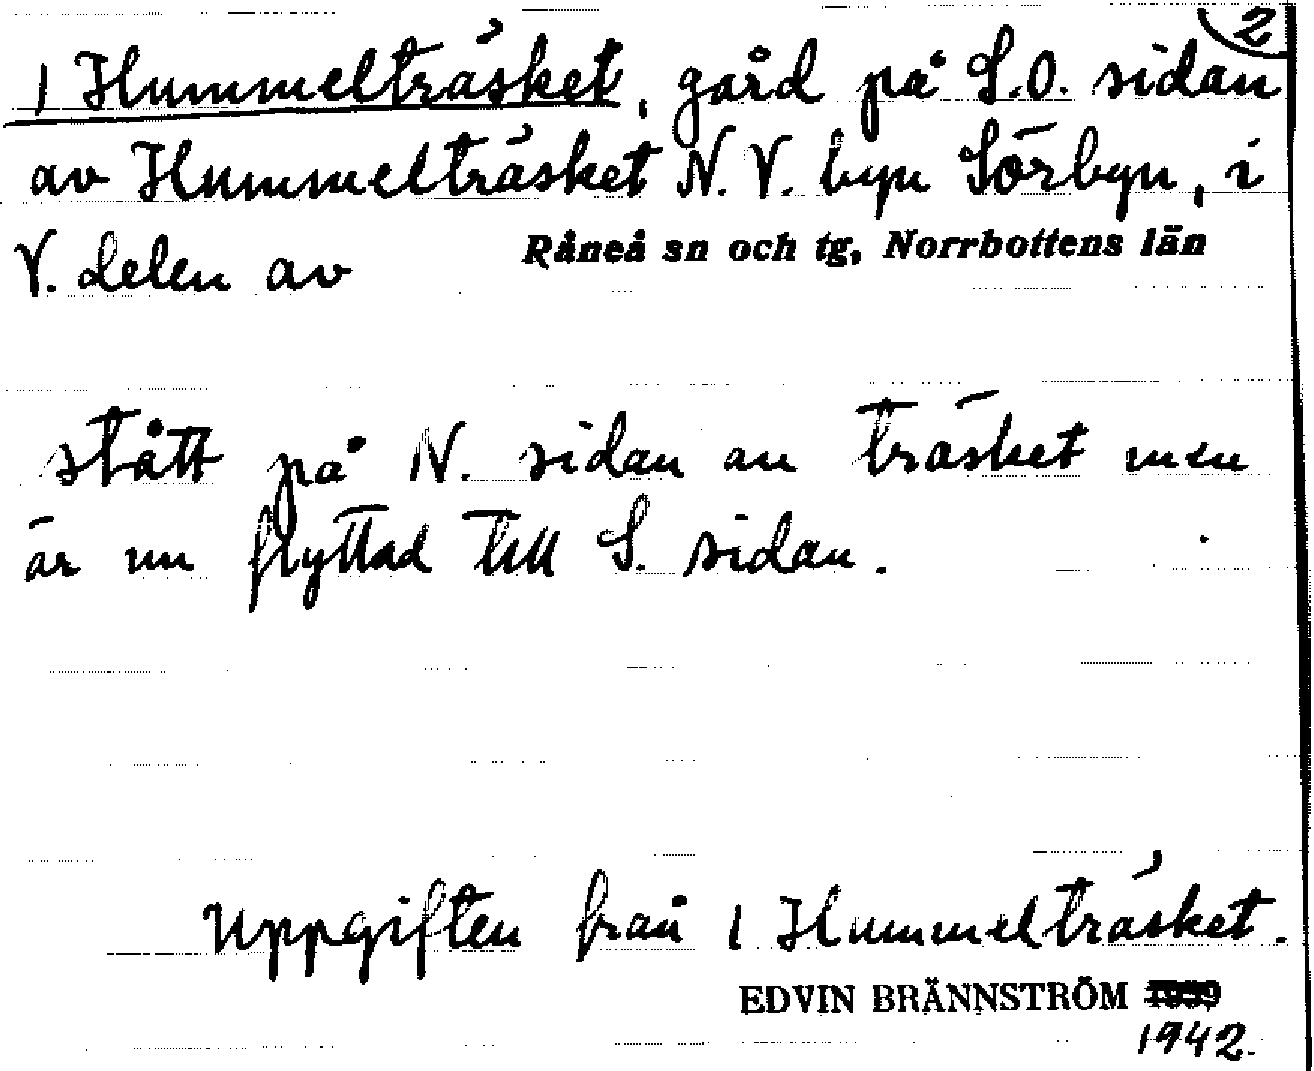 2
1 Hummelträsket, gård på S.O. sidan
av Hummelträsket N.V. byn Sörbyn, i
V. delen av Råneå sn och tg, Norrbottens län
stått på N. sidan au träsket men
är nu flyttad till S. sidan.
Uppgiften från 1 Hummelträsket.
EDVIN BRÄNNSTRÖM 1939
1942.